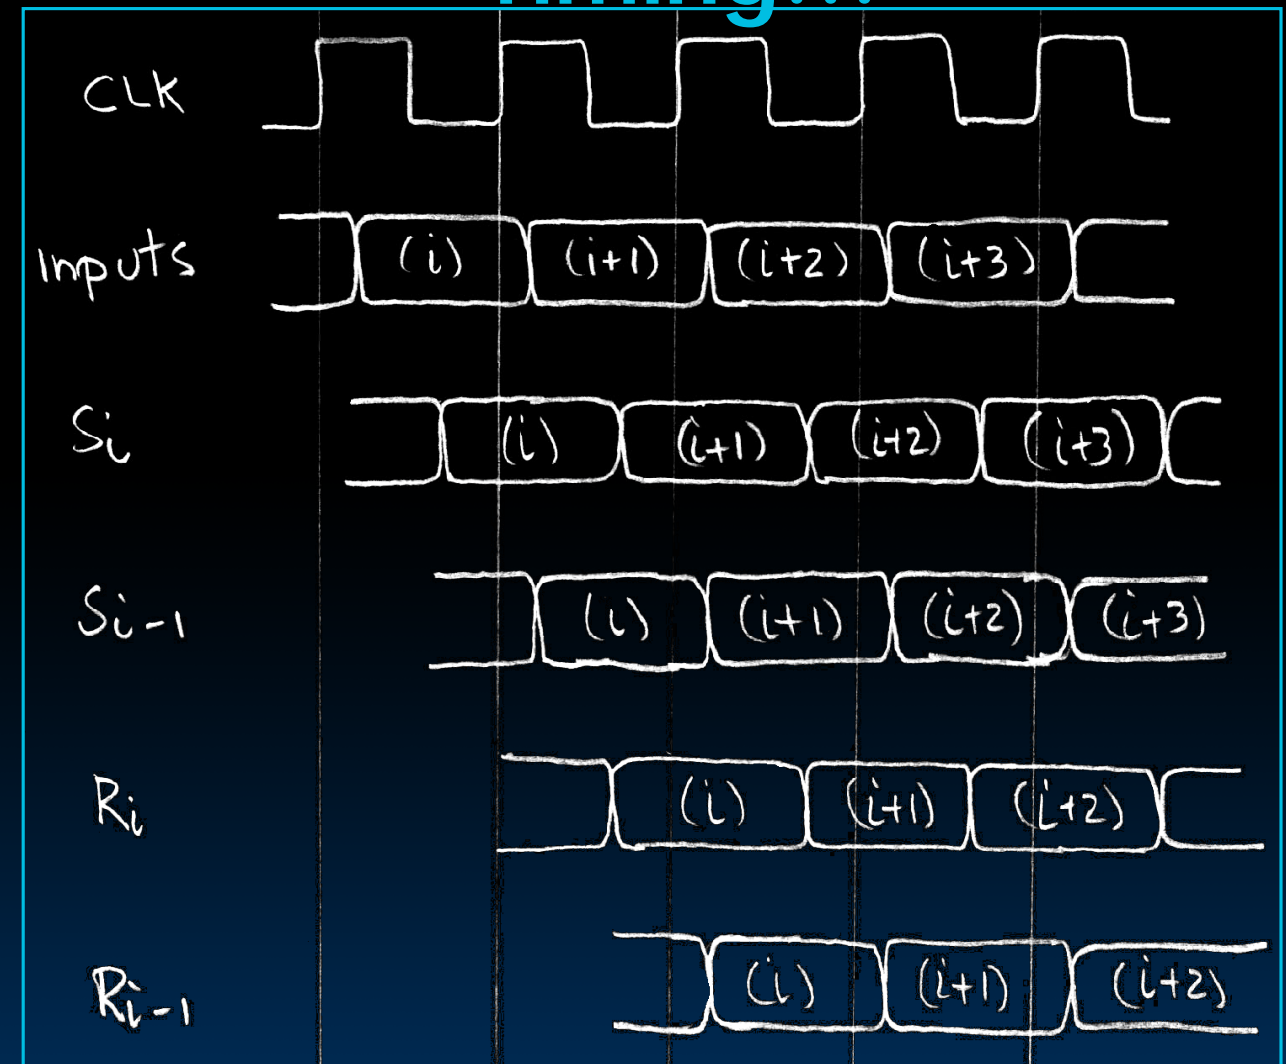 Timing...
CLK
Inputs (i) (i+1) (i+2) (i+3)
Si (i) (i+1) (i+2) (i+3)
Si-1 (i) (i+1) (i+2) (i+3)
Ri (i) (i+1) (i+2)
Ri-1 (i) (i+1) (i+2)